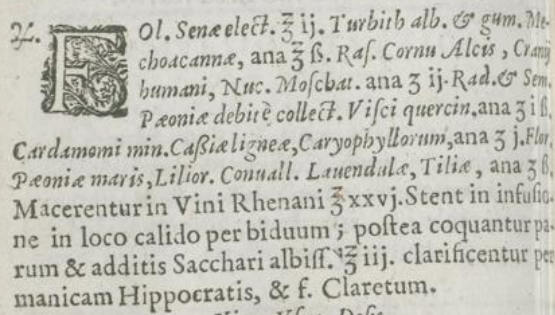 ℞. FOl. Senæ elect. ℥ ij. Turbith alb. & gum. Me-
choacannæ, ana ʒ ß. Ras. Cornu Alcis, Cranij
humani, Nuc. Moschat. ana ʒ ij. Rad. & Sem.
Pæoniæ debitè collect. Visci quercin. ana ʒ i ß.
Cardamomi min. Caßiæ ligneæ, Caryophyllorum, ana ʒ j. Flor.
Pæoniæ maris, Lilior. Conuall. Lauendulæ, Tiliæ, ana ʒ ß.
Macerentur in Vini Rhenani ℥ xxvj. Stent in infusio-
ne in loco calido per biduum; postea coquantur pa-
rum & additis Sacchari albiss. ℥ iij. clarificentur per
manicam Hippocratis, & f. Claretum.